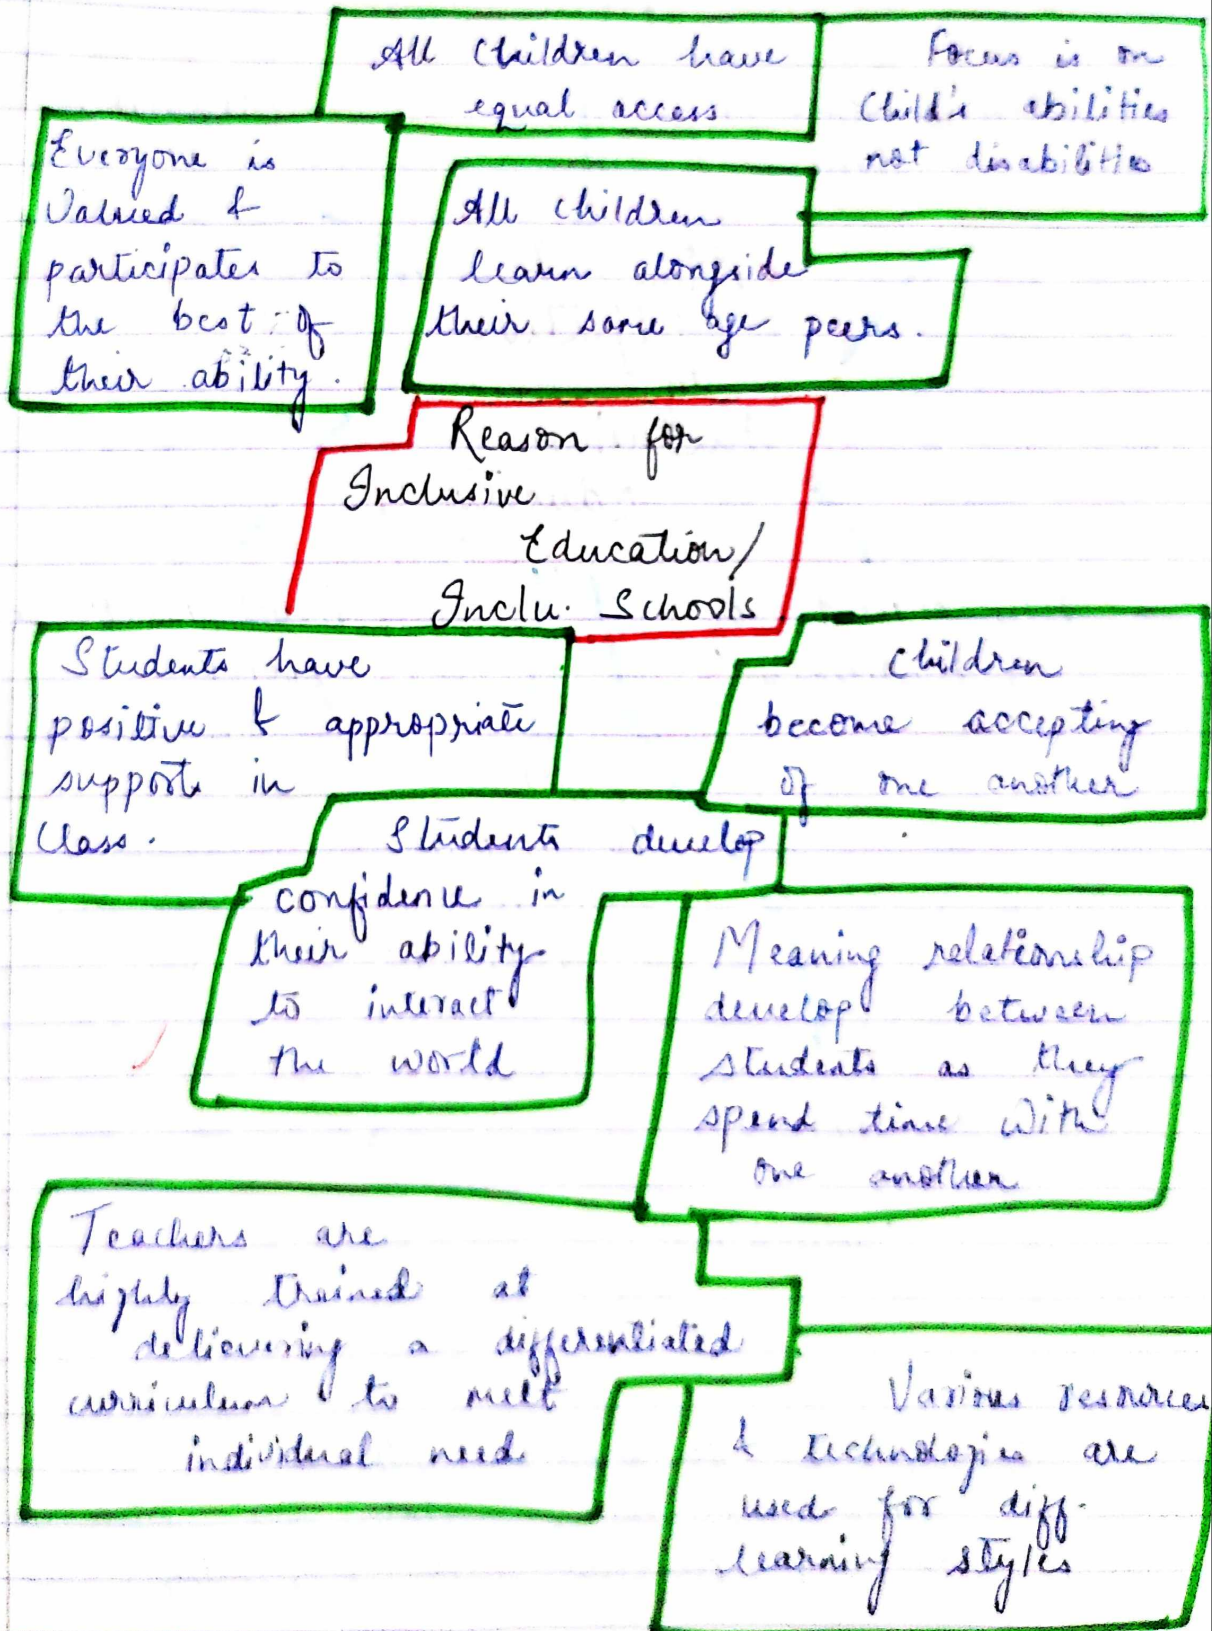 All Children have
equal access
Focus is on
Child's abilities
not disabilities
Everyone is
Valued &
participates to
the best of
their ability.
All Children
learn alongside
their same age peers.
Reason for
Inclusive
Education/
Inclu. Schools
Students have
positive & appropriate
supports in
Class.
Children
become accepting
of one another
Students develop
confidence in
their ability
to interact
the world
Meaning relationship
develop between
students as they
spend time with
one another
Teachers are
highly trained at
delievering a differentiated
curriculum to meet
individual need
Various resources
& technologies are
used for diff.
learning styles